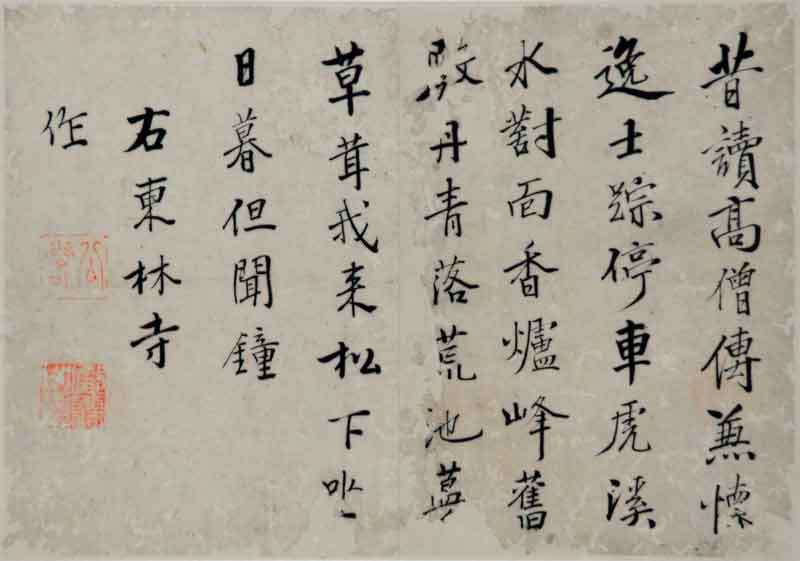 昔讀高僧傳兼懷
逸士踪停車虎溪
水對面香爐峰舊
殿丹青落荒池蔓
草茸我来松下坐
日暮但聞鐘
右東林寺
作